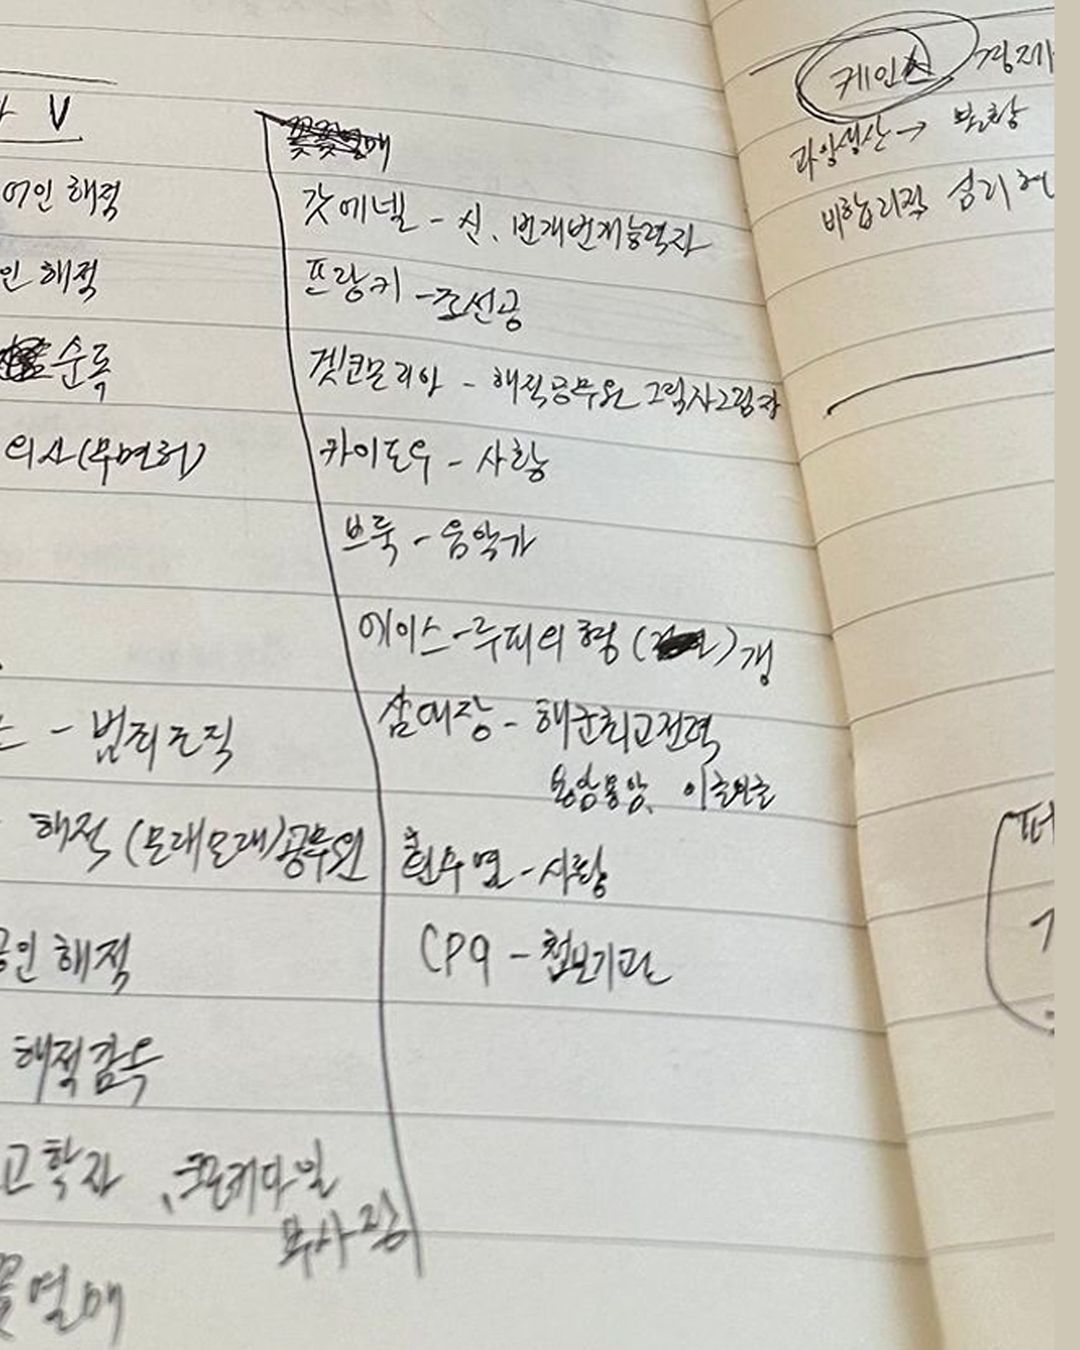 V
어인 해적
인 해적
순록
의사(무면허)
- 범죄조직
해적 (모래모래)공무원
공인 해적
해적감옥
고학자, 크로커다일
부사장
꽃열매
꽃꽃열매
갓에넬 - 신, 번개번개능력자
프랑키 - 조선공
겟코모리아 - 해적공무원 그림자그림자
카이도우 - 사황
브룩 - 음악가
에이스 - 루피의 형 ( ) 갱
삼대장 - 해군최고전력
흰수염 - 사황
CP9 - 첩보기관
케인스 경제
과잉생산 → 불황
비합리적 심리